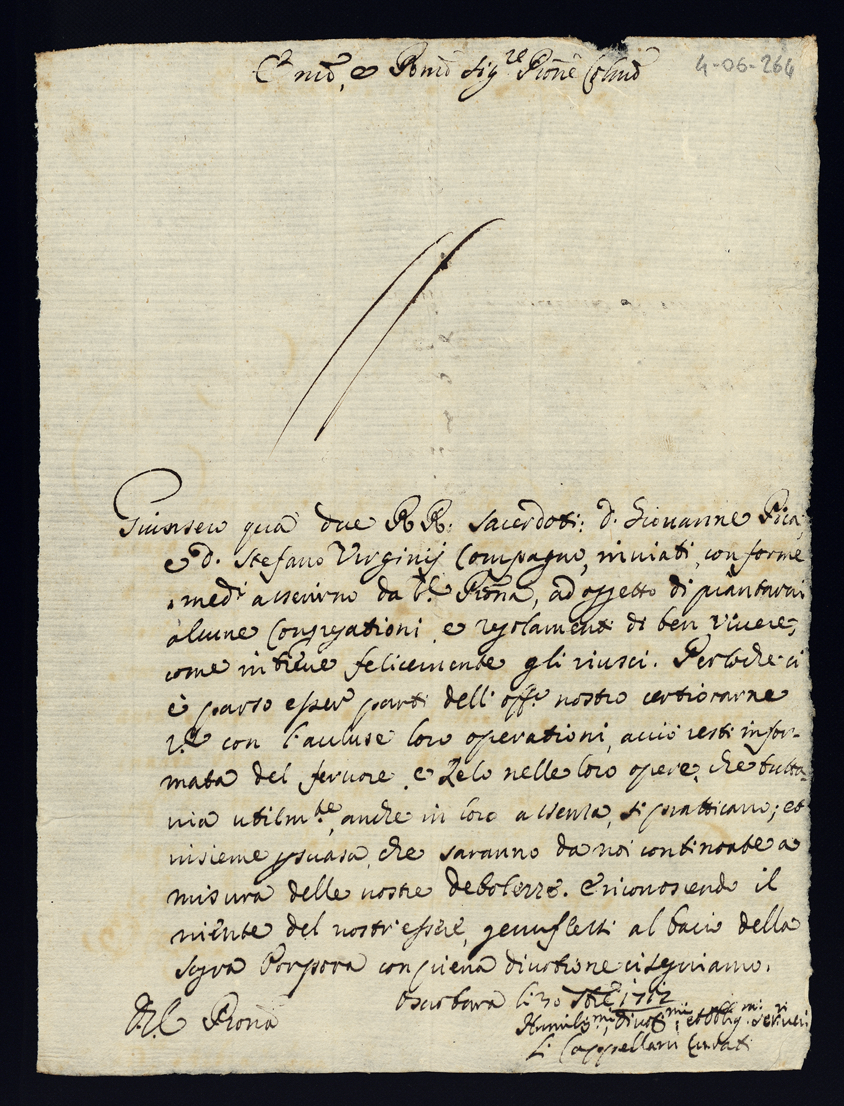 Em̃o, e Rm̃o Sig.re P̃rone Colm̃o
4-06-264
Giunsero quà due RR: Sacerdoti: D. Giovanne Pica,
e D. Stefano Virginij Compagno, inviati, conforme
asserirno da V.E. P̃rona, ad oggetto di piantarvi
alcune Congregationi, e regolamenti di ben vivere,
come in breve felicemente gli riuscì. Perloche ci
è parso esser parti dell'off.o nostro certiorarne
V.E. con l'accluse loro operationi, acciò resti infor-
mata del fervore, e Zelo nelle loro opere, che tutta-
via utilm.te, anche in loro assenza, si pratticano; et
insieme p̃suasa, che saranno da noi continoate a
misura delle nostre debolezze. E riconoscendo il
niente del nostr'essere, genuflessi al bacio della
Sagra Porpora con piena divotione ci segniamo.
li 30 1712
D.V.E. P̃rona
Humil.mi, Divot.mi, et Oblig.mi Ser.ri veri
Li Cappellani Curati